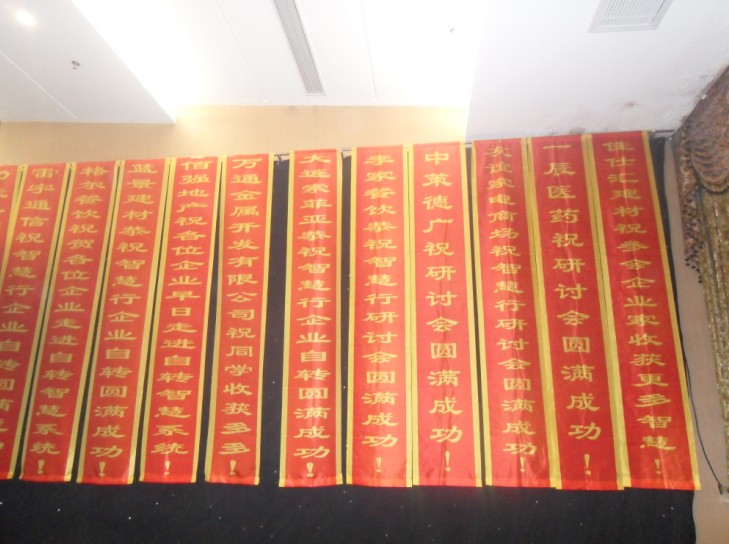 雷宇通信祝智慧行企业自转圆满
格尔餐饮祝贺各位企业走进自转智慧系统！
蓝景建材恭祝智慧行企业自转圆满成功！
佰强地产祝各位企业早日走进自转智慧系统！
万通金属开发有限公司祝同学收获多多
大连索菲亚恭祝智慧行企业自转圆满成功！
李家餐饮恭祝智慧行研讨会圆满成功！
中策德广祝研讨会圆满成功！
安谊家电商场祝智慧行研讨会圆满成功！
一辰医药祝研讨会圆满成功！
佳仕汇建材祝参会企业家收获更多智慧！